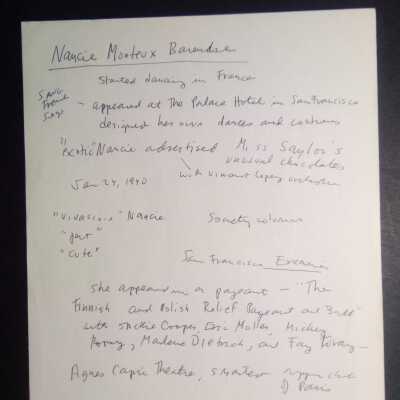 Nancie Monteux Barendse
started dancing in France
sang French songs
- appeared at The Palace Hotel in San Francisco
designed her own dances and costumes
"Exotic" Nancie advertised Miss Saylor's
unusual chocolates
with Vincent Lopez orchestra
Jan 24, 1940
"vivacious" Nancie Society columns
"pert"
"cute"
San Francisco Examiner
She appeared in a pageant - "The
Finnish and Polish Relief Pageant and Ball"
with Jackie Cooper, Mickey
Rooney, Marlene Dietrich, and Fay Wray -
Agnes Capri Theatre, smartest supper club
of Paris